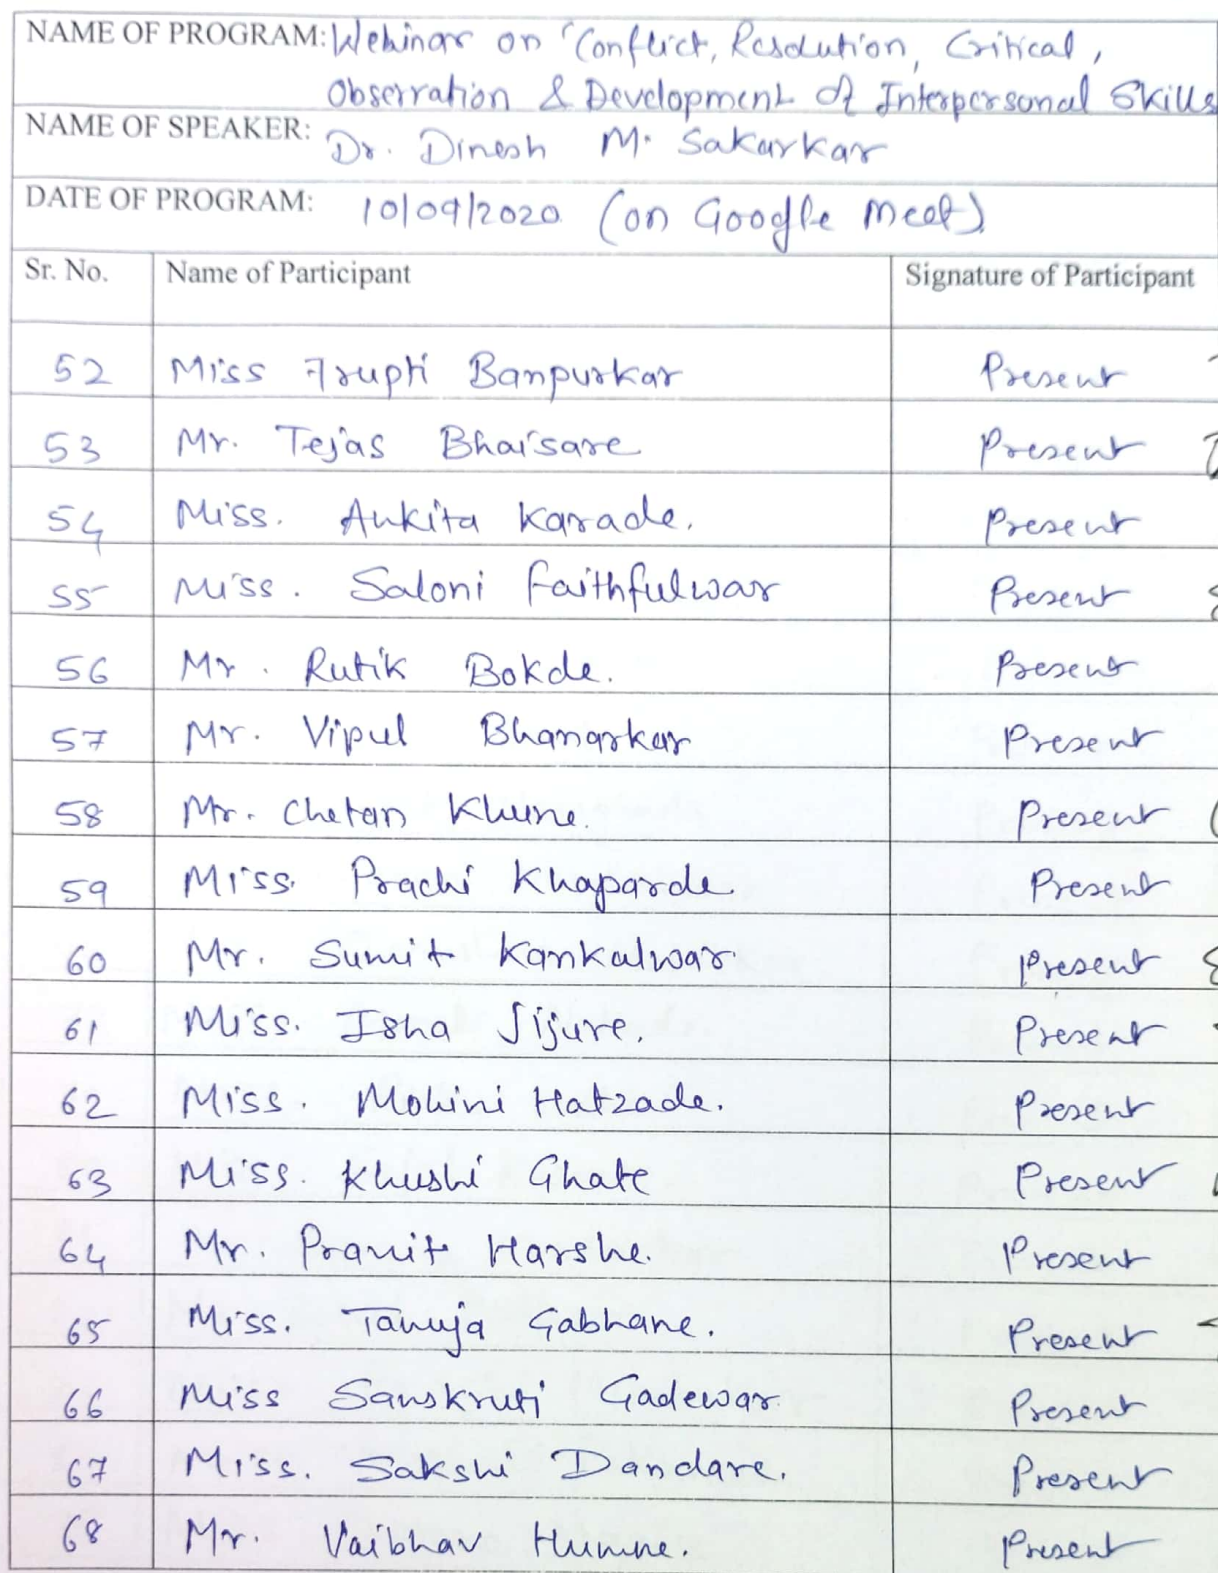 NAME OF PROGRAM: Webinar on "Conflict, Resolution, Critical,
Observation & Development of Interpersonal Skills
NAME OF SPEAKER: Dr. Dinesh M. Sakarkar
DATE OF PROGRAM: 10/09/2020 (on Google Meet)
Sr. No. Name of Participant Signature of Participant
52 Miss Trupti Banpurkar Present
53 Mr. Tejas Bhaisare Present
54 Miss. Ankita Karade. Present
55 Miss. Saloni Faithfulwar Present
56 Mr. Rutik Bokde. Present
57 Mr. Vipul Bhanarkar Present
58 Mr. Chetan Khune. Present
59 Miss. Prachi Khaparde. Present
60 Mr. Sumit Kankalwar Present
61 Miss. Isha Jijure. Present
62 Miss. Mohini Hatzade. Present
63 Miss. Khushi Ghate Present
64 Mr. Pranit Harshe. Present
65 Miss. Tanuja Gabhane. Present
66 Miss Sanskruti Gadewar Present
67 Miss. Sakshi Dandare. Present
68 Mr. Vaibhav Humne. Present